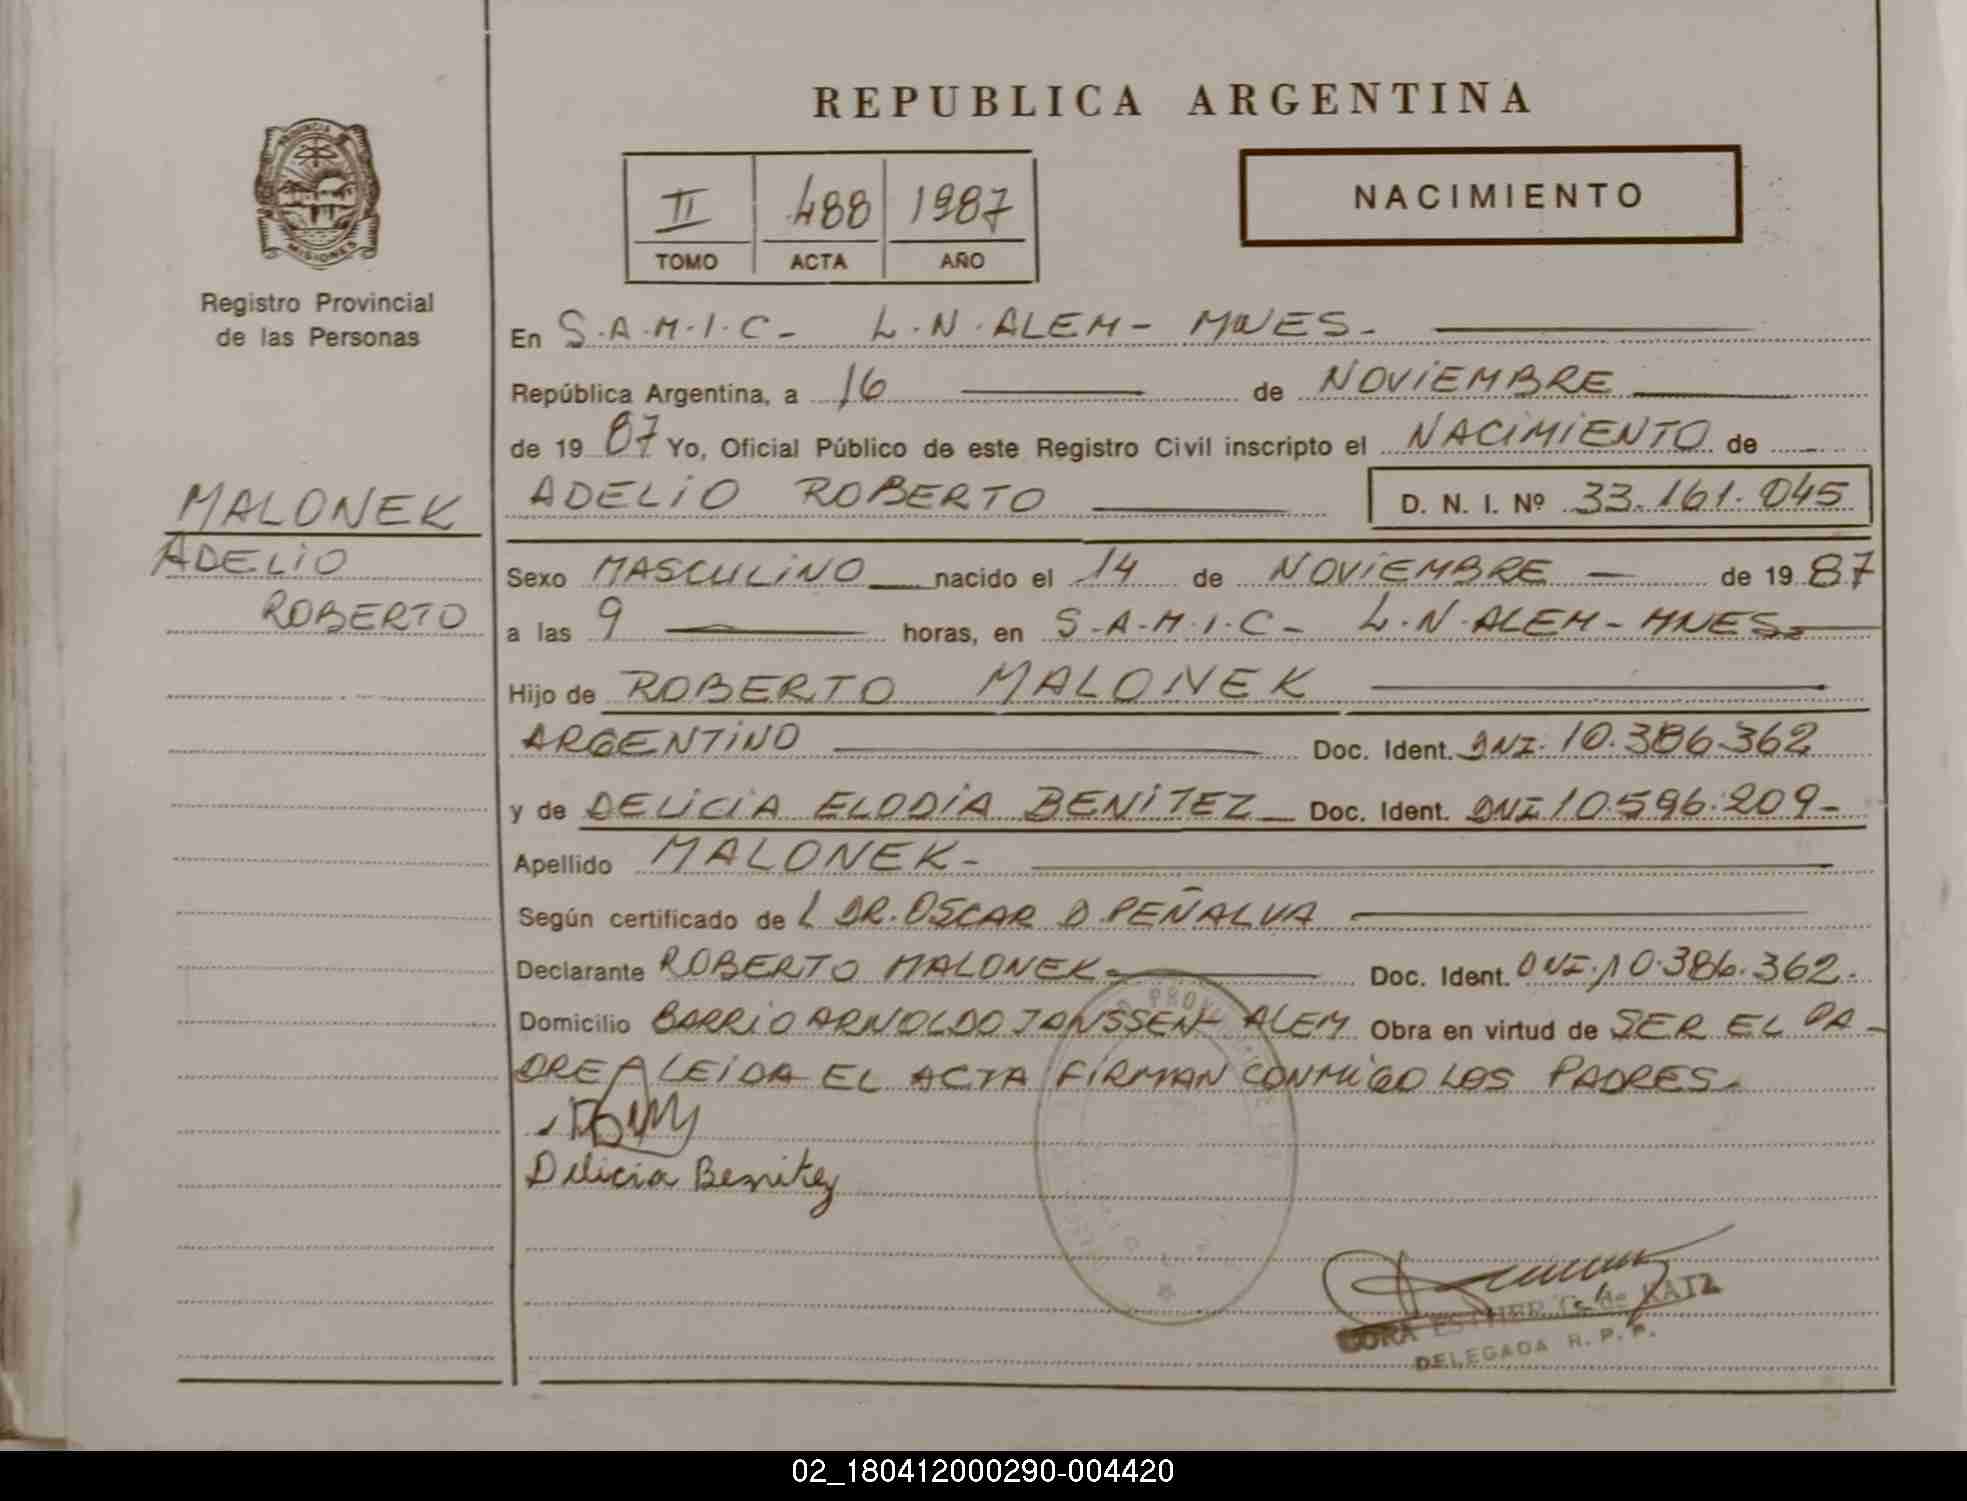 REPUBLICA ARGENTINA
PROVINCIA
MISIONES
Registro Provincial
de las Personas
II 488 1987
TOMO ACTA AÑO
NACIMIENTO
En S.A.M.I.C- L.N.ALEM- MNES-
República Argentina, a 16 de NOVIEMBRE
de 19 87 Yo, Oficial Público de este Registro Civil inscripto el NACIMIENTO de
ADELIO ROBERTO D. N. I. Nº 33.161.045
MALONEK
ADELIO
ROBERTO
Sexo MASCULINO nacido el 14 de NOVIEMBRE de 19 87
a las 9 horas, en S-A-M.I.C- L.N.ALEM-MNES-
Hijo de ROBERTO MALONEK
ARGENTINO Doc. Ident. DNI. 10.386.362
y de DELICIA ELODIA BENITEZ Doc. Ident. DNI 10.596.209-
Apellido MALONEK-
Según certificado de L DR. OSCAR D. PEÑALVA
Declarante ROBERTO MALONEK- Doc. Ident. DNI. 10.386.362.-
Domicilio BARRIO ARNOLDO JANSSEN- ALEM Obra en virtud de SER EL PA-
DRE LEIDA EL ACTA FIRMAN CONMIGO LOS PADRES-
Delicia Benitez
ESTHER de KATZ
DELEGADA R. P. P.
02_180412000290-004420